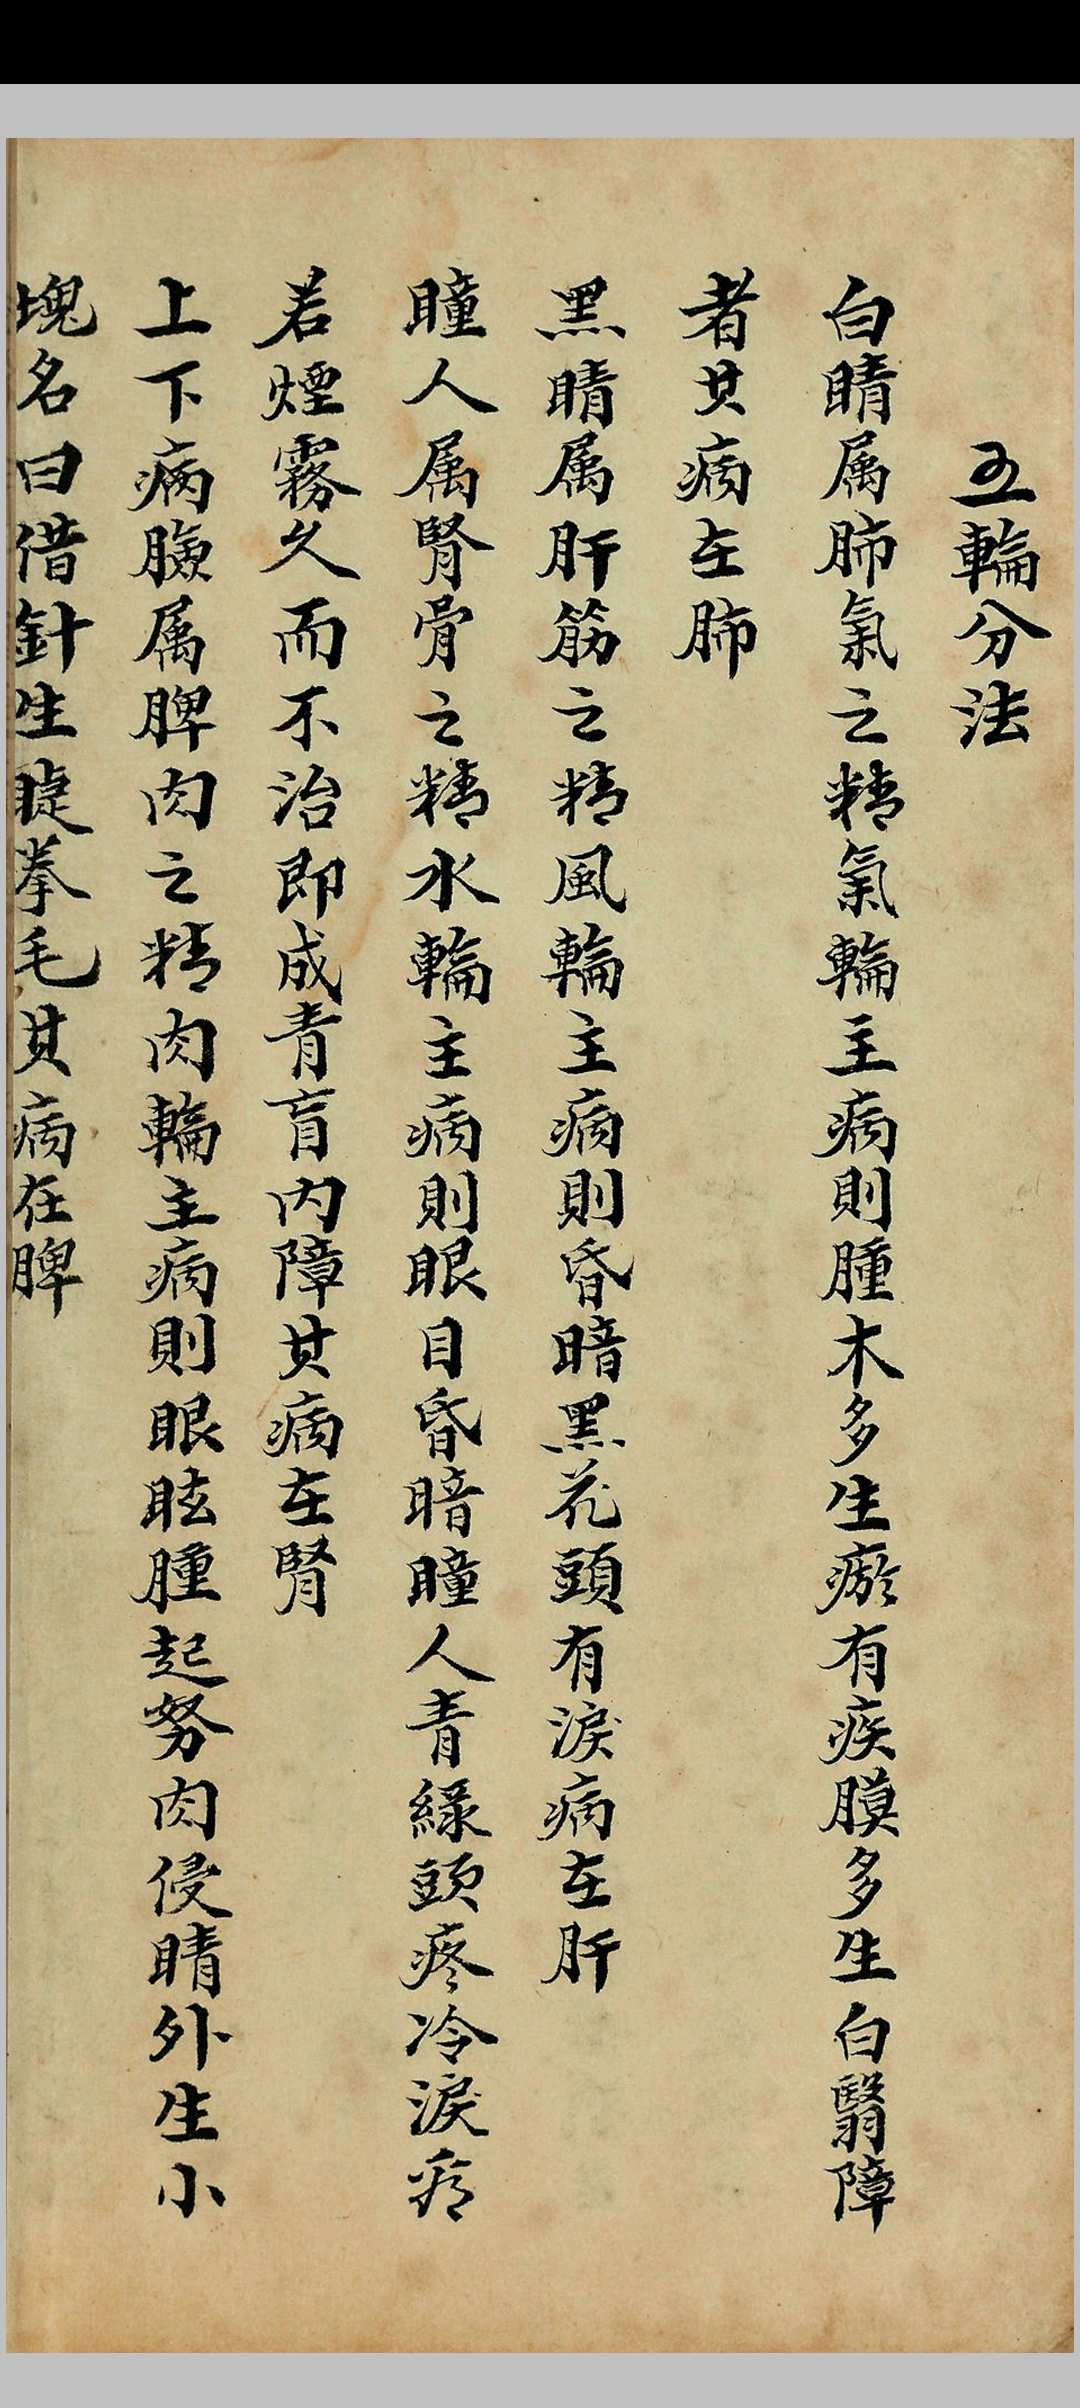 五輪分法
白睛属肺氣之精氣輪主病則腫木多生瘀有疾膜多生白翳障
者其病在肺
黑睛属肝筋之精風輪主病則昏暗黑花頭有淚病在肝
瞳人属腎骨之精水輪主病則眼目昏暗瞳人青綠頭疼冷淚
若煙霧久而不治即成青盲内障其病在腎
上下病臉属脾肉之精肉輪主病則眼眩腫起努肉侵睛外生小
塊名曰借針生睫拳毛其病在脾